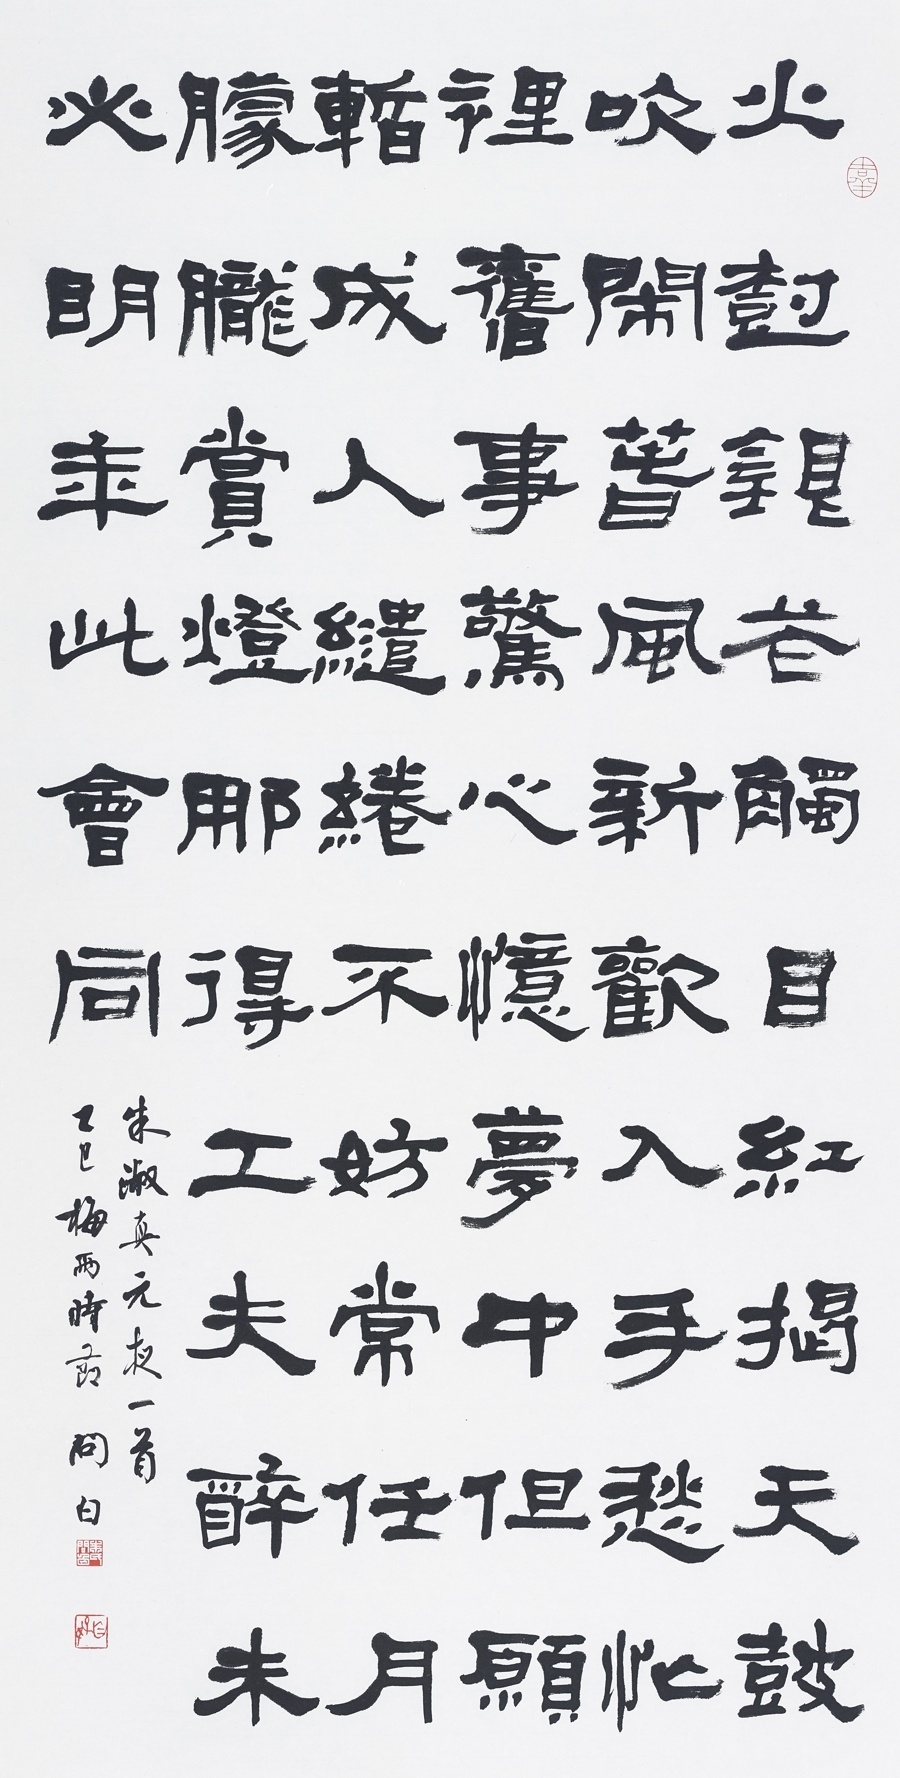 火尌銀花觸目紅揭天鼓
吹閙春風新歡入手愁忙
裡舊事驚心憶夢中但願
暫成人繾綣不妨常任月
朦朧賞燈那得工夫醉未
必明年此會同
朱淑真元夜一首
乙巳梅雨時節 問白